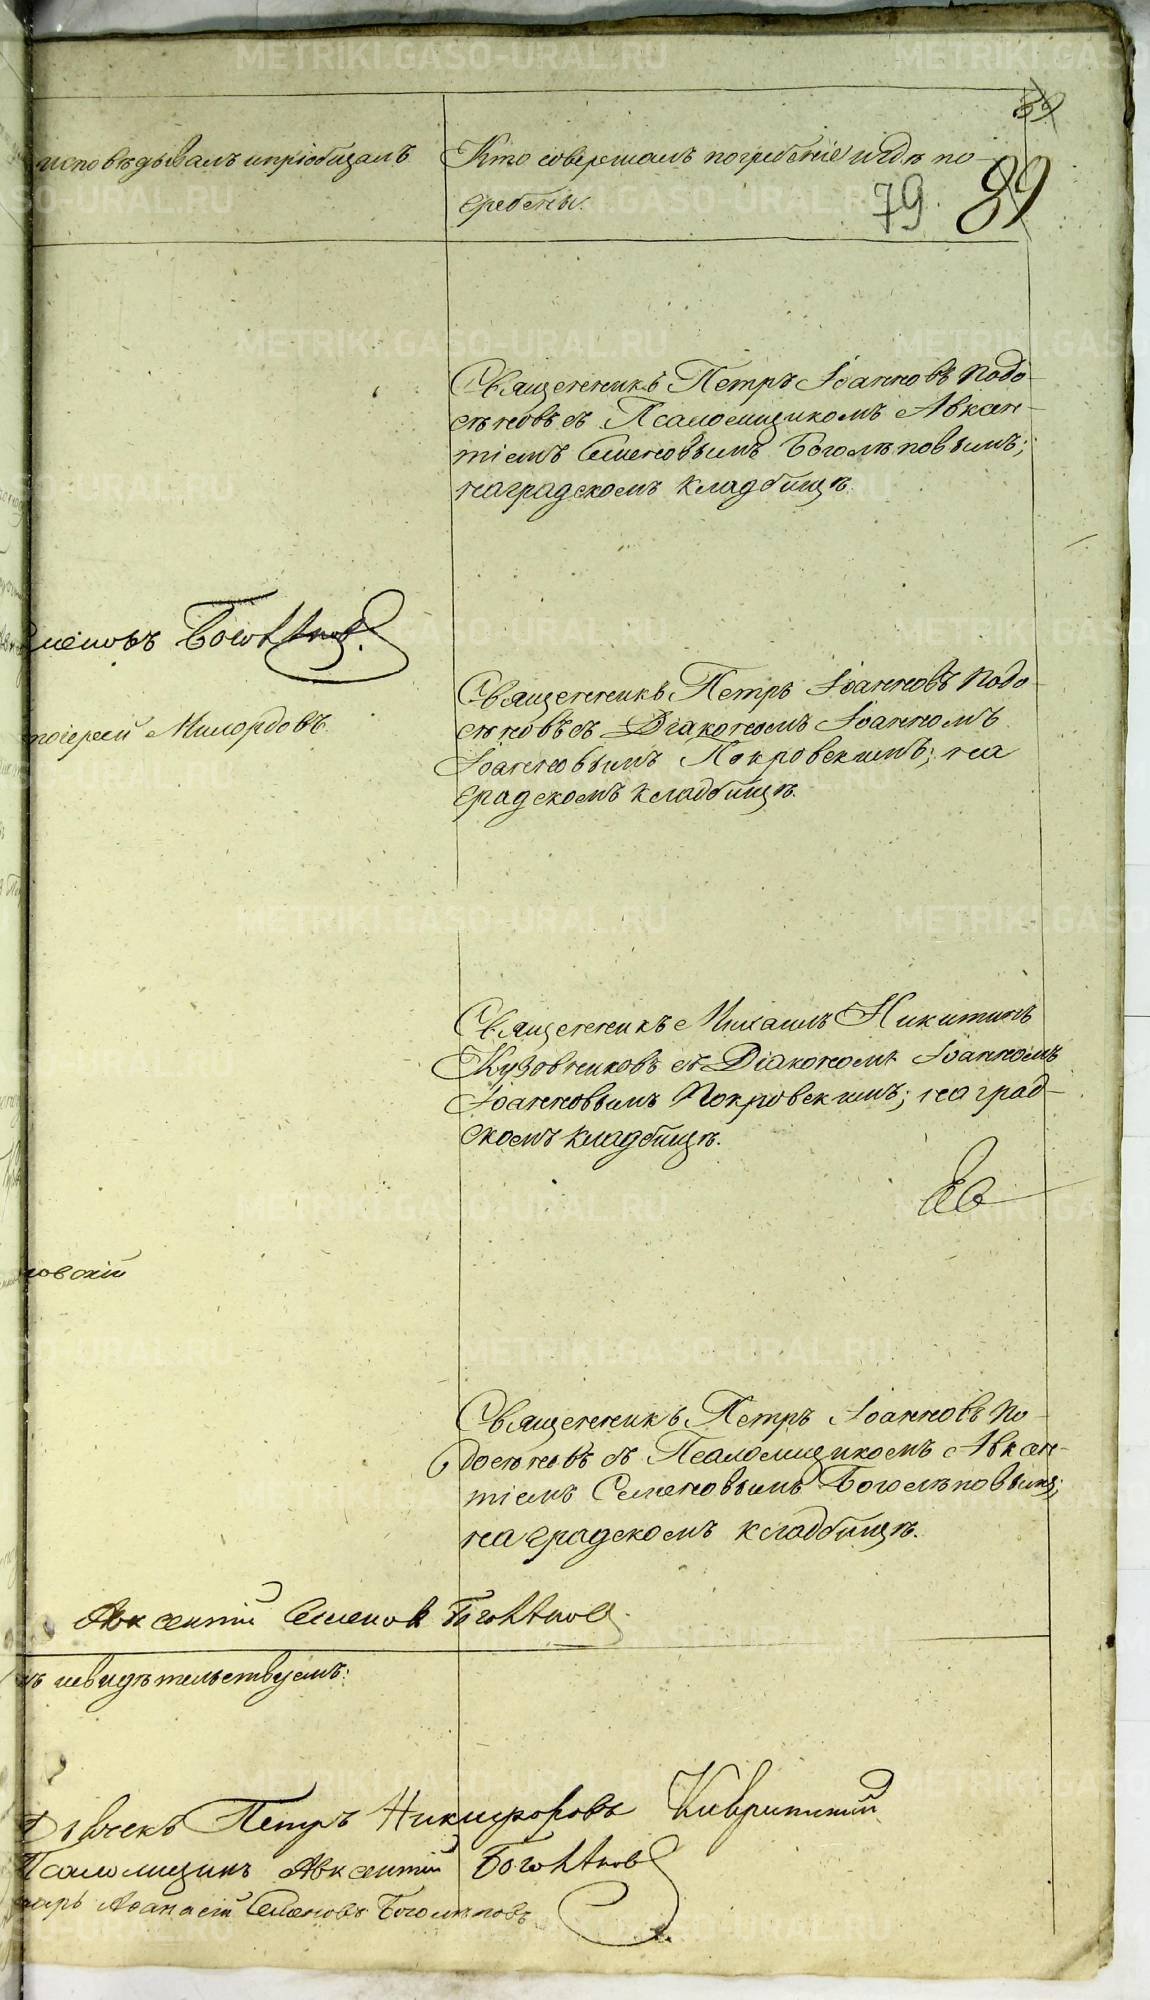 89
исповѣдывалъ и пріобщалъ
Кто совершалъ погребеніе и гдѣ по
гребены.
79. 89
Священникъ Петръ Іоанновъ Подо
сѣновъ съ Псаломщикомъ Авксен
тіемъ Семеновымъ Боголѣповымъ;
на градскомъ кладбищѣ.
меновъ Боголѣповъ.
Священникъ Петръ Іоанновъ Подо
сѣновъ съ Діакономъ Іоанномъ
Іоанновымъ Покровскимъ; на
градскомъ кладбищѣ.
тоіерей Милордовъ
Священникъ Михаилъ Никитинъ
Кузовниковъ съ Діакономъ Іоанномъ
Іоанновымъ Покровскимъ; на град-
скомъ кладбищѣ.
ховскій
Священникъ Петръ Іоанновъ По
досѣновъ съ Псаломщикомъ Авксен-
тіемъ Семеновымъ Боголѣповымъ;
на градскомъ кладбищѣ.
Авксентій Семенов Боголѣповъ.
свидѣтельствуемъ:
Дьячекъ Петръ Никифоровъ
Псаломщикъ Авксентій Боголѣповъ
Афанасій Семеновъ Боголѣповъ
METRIKI.GASO-URAL.RU